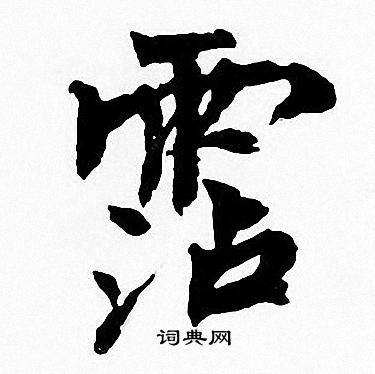 霑
词典网